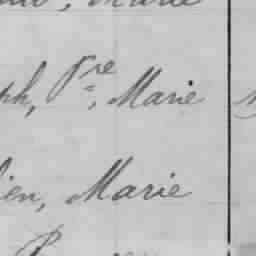 Marie
ph, Pre, Marie
ien, Marie